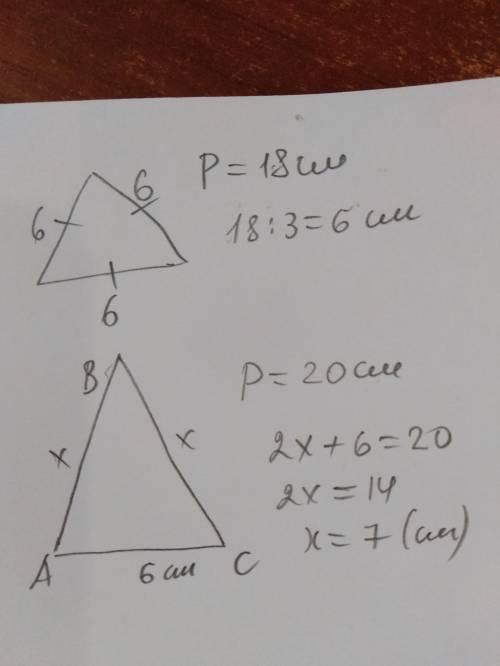 6
6
6
P = 18 см
18 : 3 = 6 см
B
x
x
A
6 см
C
P = 20 см
2x + 6 = 20
2x = 14
x = 7 (см)